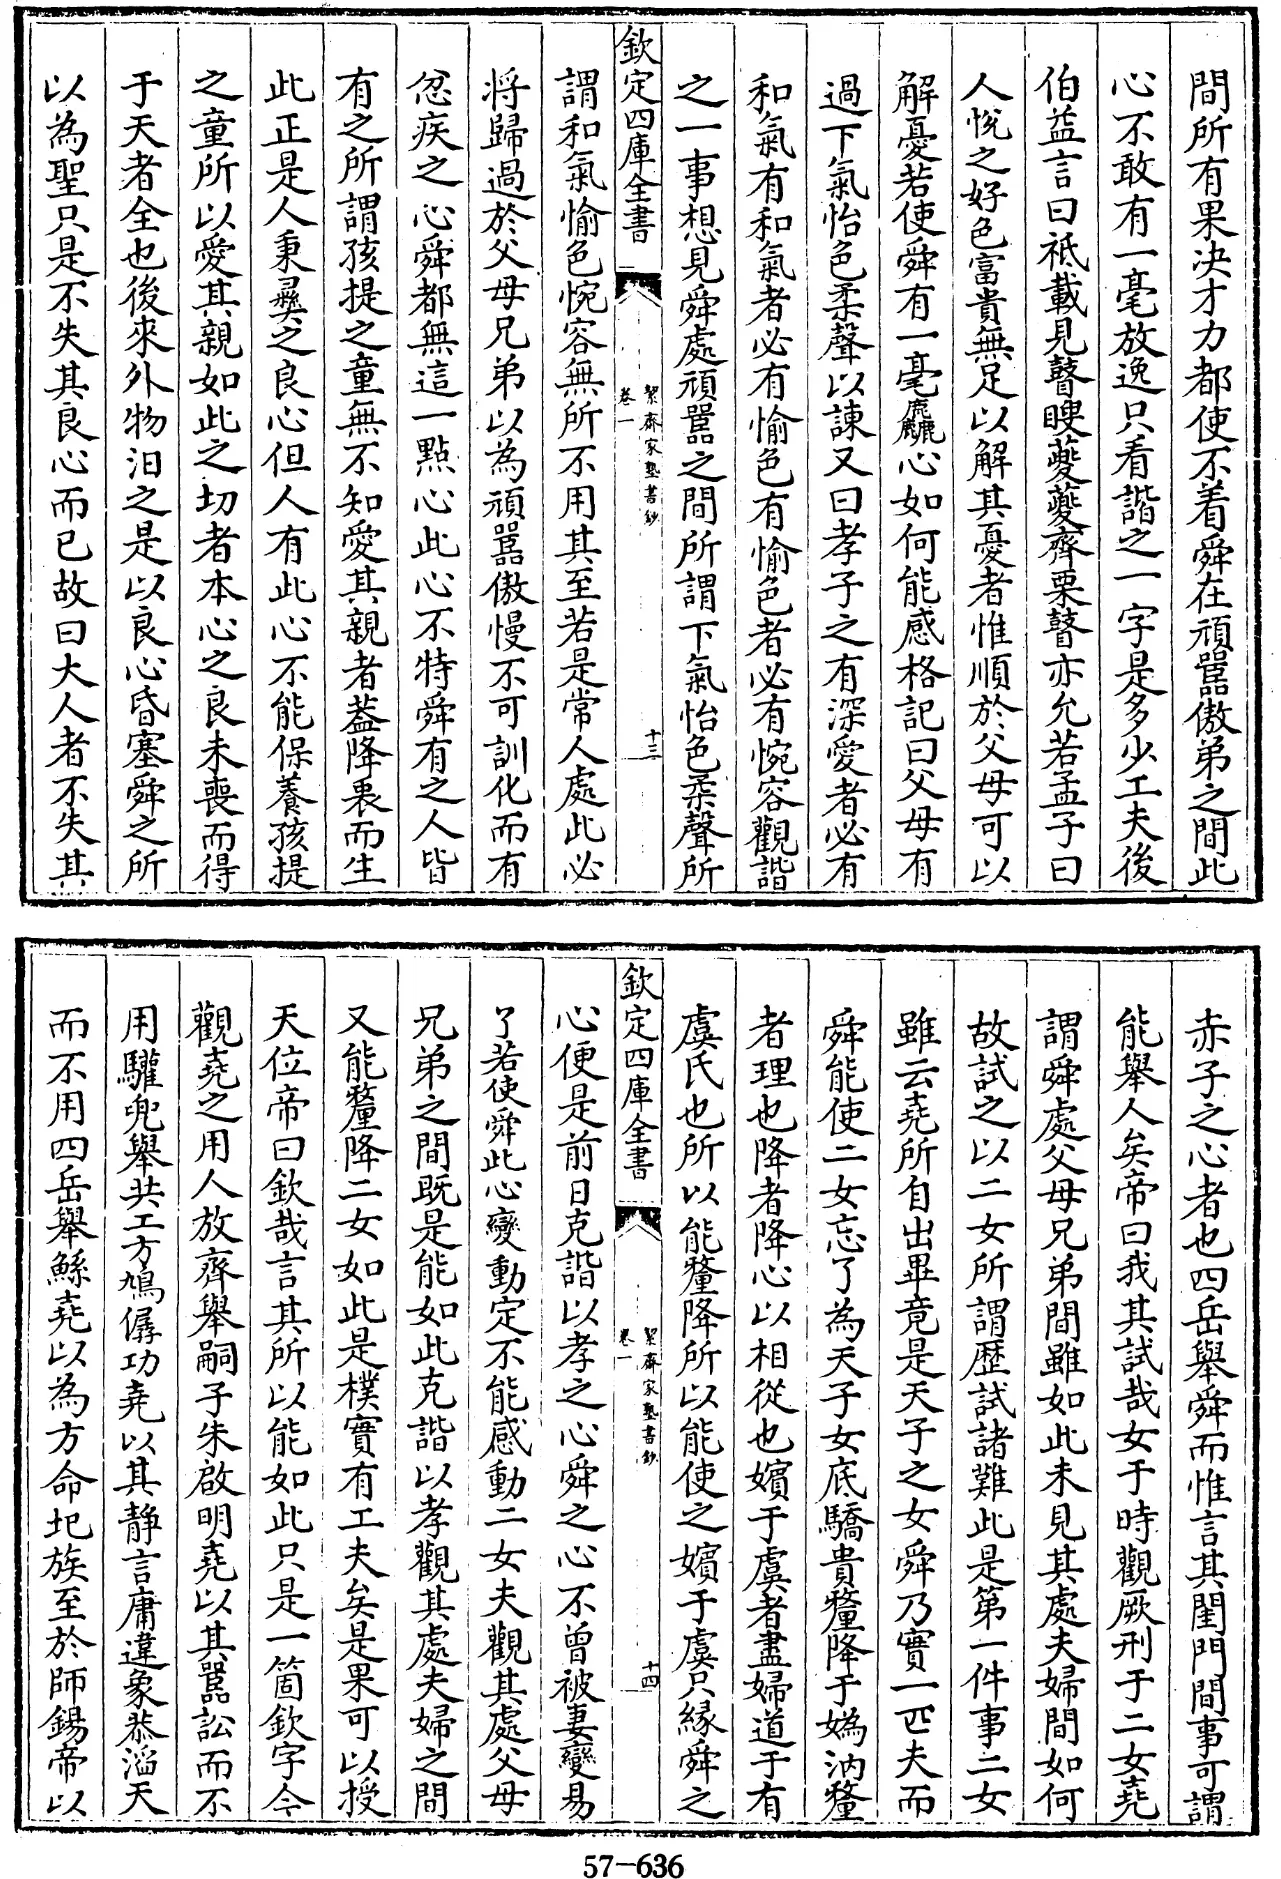 間所有果決才力都使不着舜在頑嚚傲弟之間此
心不敢有一毫放逸只看諧之一字是多少工夫後
伯益言曰祗載見瞽瞍夔夔齊栗瞽亦允若孟子曰
人恱之好色富貴無足以解其憂者惟順於父母可以
解憂若使舜有一毫麤心如何能感格記曰父母有
過下氣怡色柔聲以諫又曰孝子之有深愛者必有
和氣有和氣者必有愉色有愉色者必有惋容觀諧
之一事想見舜處頑嚚之間所謂下氣怡色柔聲所
欽定四庫全書
絜齋家塾書鈔
卷一
十三
謂和氣愉色惋容無所不用其至若是常人處此必
將歸過於父母兄弟以為頑嚚傲慢不可訓化而有
忿疾之心舜都無這一點心此心不特舜有之人皆
有之所謂孩提之童無不知愛其親者葢降衷而生
此正是人秉彛之良心但人有此心不能保養孩提
之童所以愛其親如此之切者本心之良未喪而得
于天者全也後來外物汨之是以良心昏塞舜之所
以為聖只是不失其良心而已故曰大人者不失其
赤子之心者也四岳舉舜而惟言其閨門間事可謂
能舉人矣帝曰我其試哉女于時觀厥刑于二女堯
謂舜處父母兄弟間雖如此未見其處夫婦間如何
故試之以二女所謂歴試諸難此是第一件事二女
雖云堯所自出畢竟是天子之女舜乃實一匹夫而
舜能使二女忘了為天子女底驕貴釐降于媯汭釐
者理也降者降心以相從也嬪于虞者盡婦道于有
虞氏也所以能釐降所以能使之嬪于虞只縁舜之
欽定四庫全書
絜齋家塾書鈔
卷一
十四
心便是前日克諧以孝之心舜之心不曾被妻變易
了若使舜此心變動定不能感動二女夫觀其處父母
兄弟之間既是能如此克諧以孝觀其處夫婦之間
又能釐降二女如此是樸實有工夫矣是果可以授
天位帝曰欽哉言其所以能如此只是一箇欽字今
觀堯之用人放齊舉嗣子朱啟明堯以其嚚訟而不
用驩兜舉共工方鳩僝功堯以其靜言庸違象恭滔天
而不用四岳舉鯀堯以為方命圯族至於師錫帝以
57-636